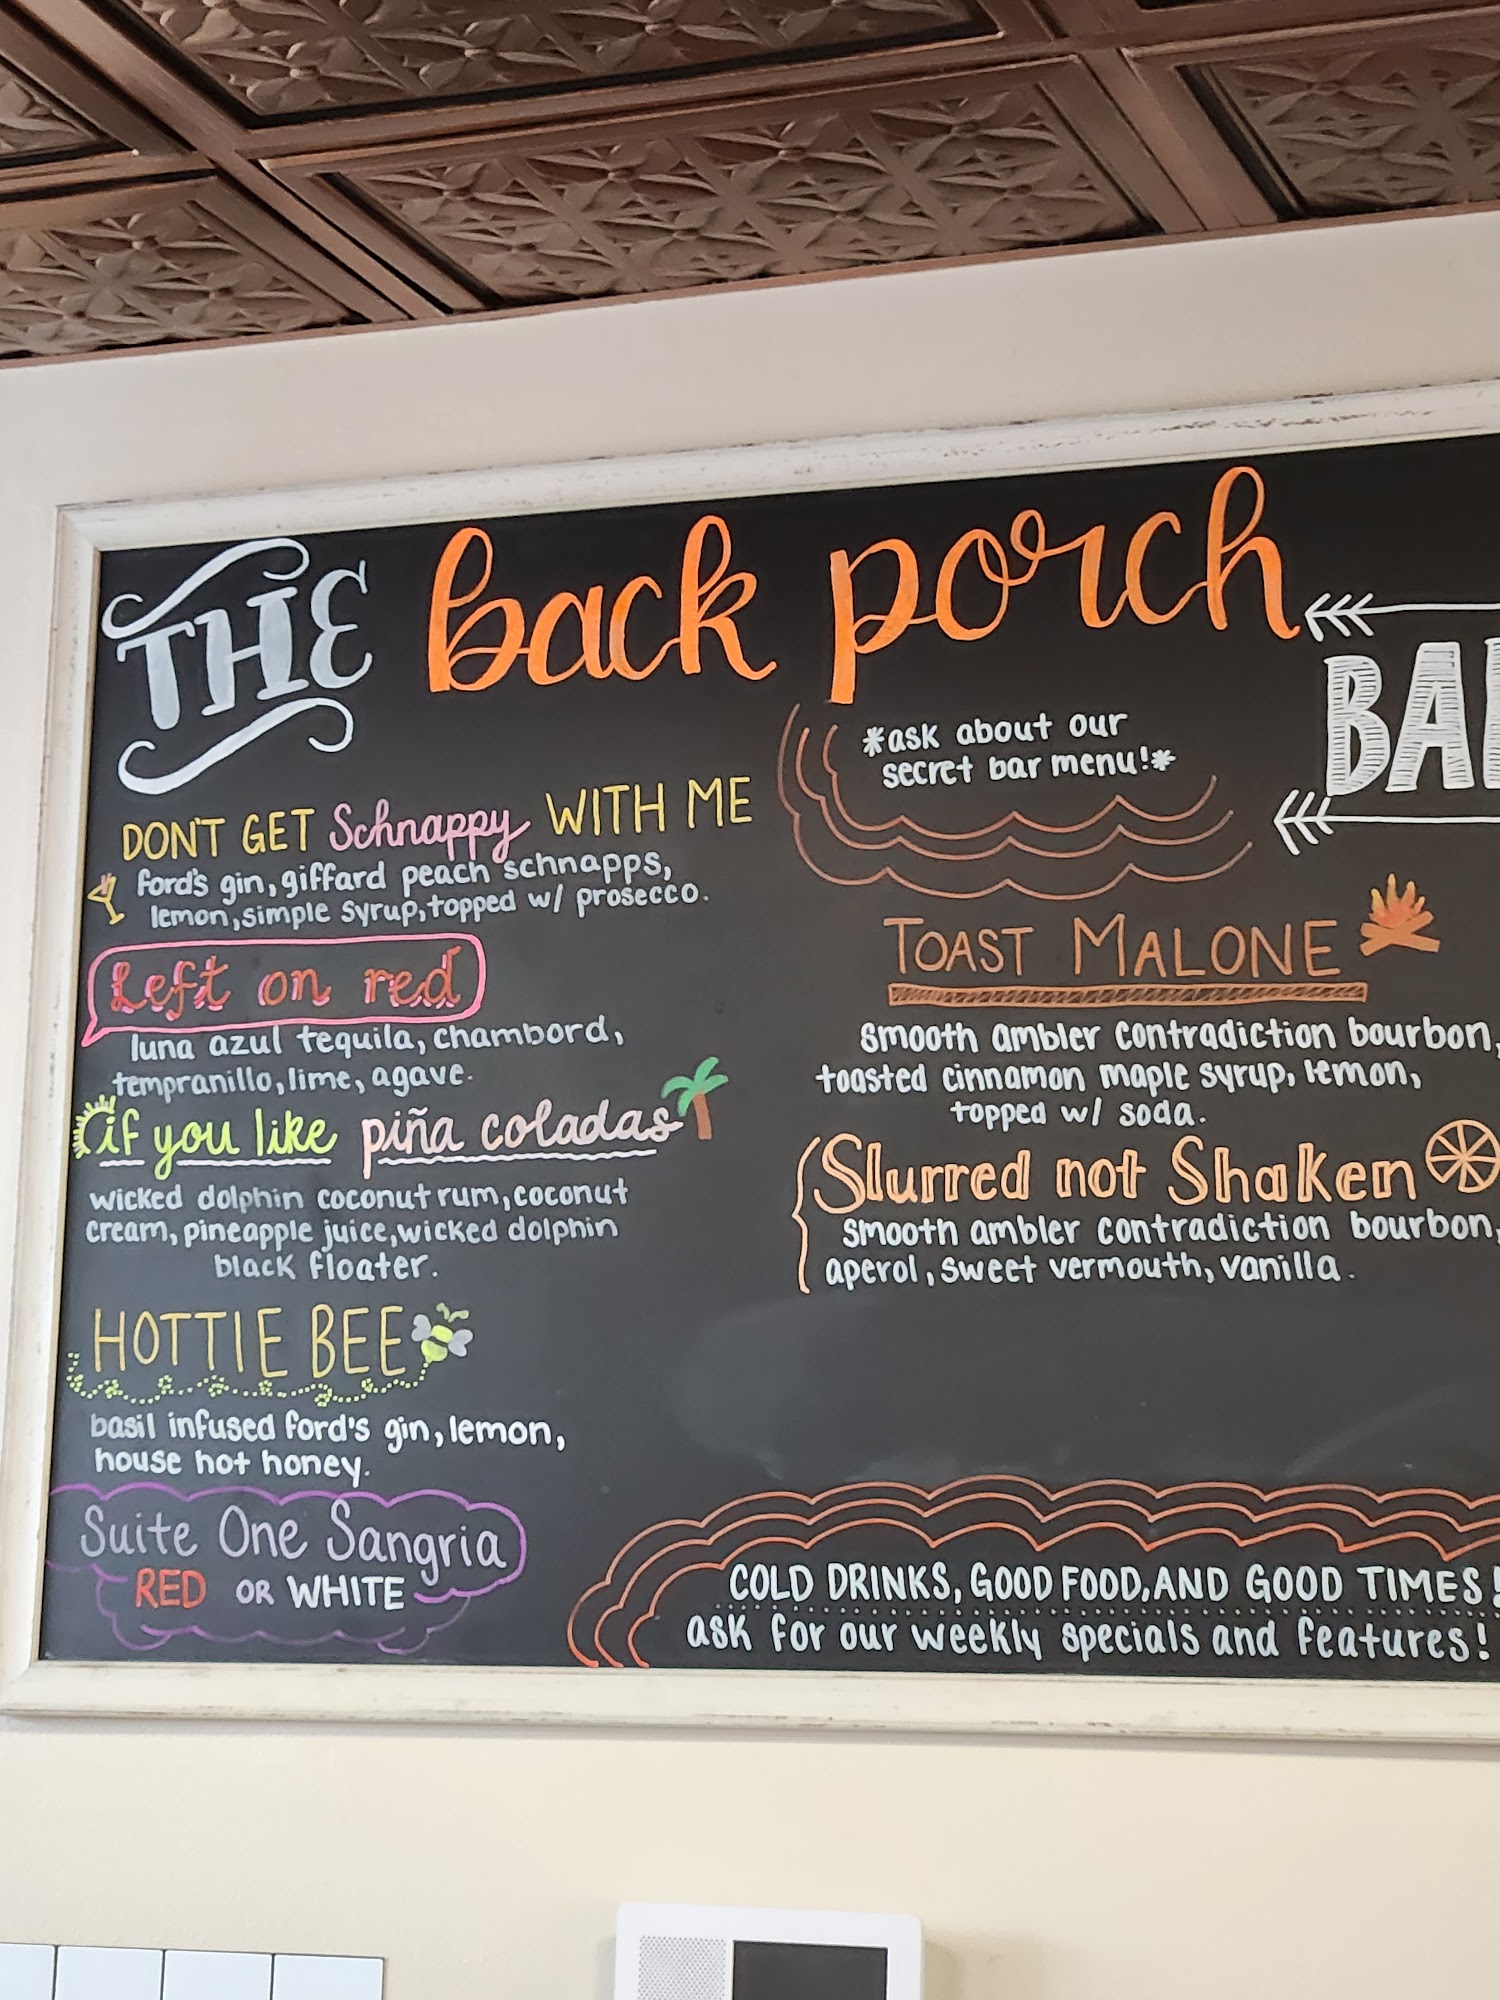 THE back porch
*ask about our
secret bar menu!*
DON'T GET Schnappy WITH ME
ford's gin, giffard peach schnapps,
lemon, simple syrup, topped w/ prosecco.
Left on red
luna azul tequila, chambord,
tempranillo, lime, agave.
if you like piña coladas
wicked dolphin coconut rum, coconut
cream, pineapple juice, wicked dolphin
black floater.
HOTTIE BEE
basil infused ford's gin, lemon,
house hot honey.
Suite One Sangria
RED OR WHITE
TOAST MALONE
smooth ambler contradiction bourbon,
toasted cinnamon maple syrup, lemon,
topped w/ soda.
Slurred not Shaken
smooth ambler contradiction bourbon,
aperol, sweet vermouth, vanilla.
COLD DRINKS, GOOD FOOD, AND GOOD TIMES!
ask for our weekly specials and features!